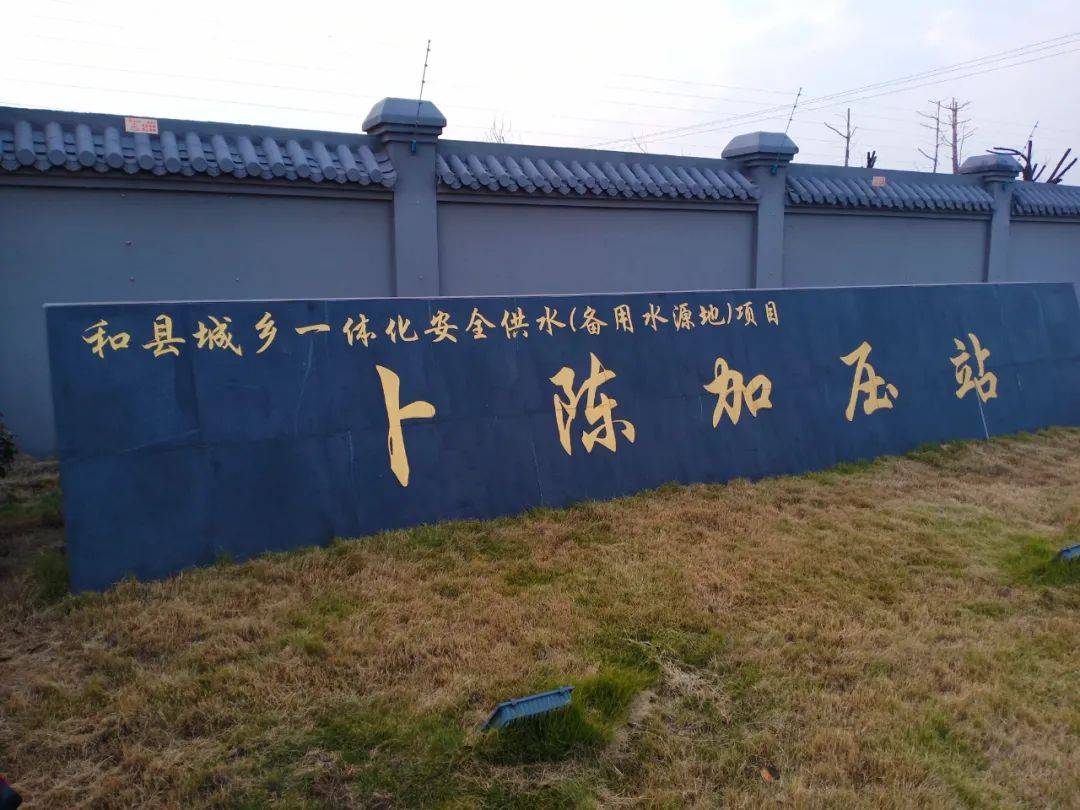 和县城乡一体化安全供水(备用水源地)项目
卜陈加压站